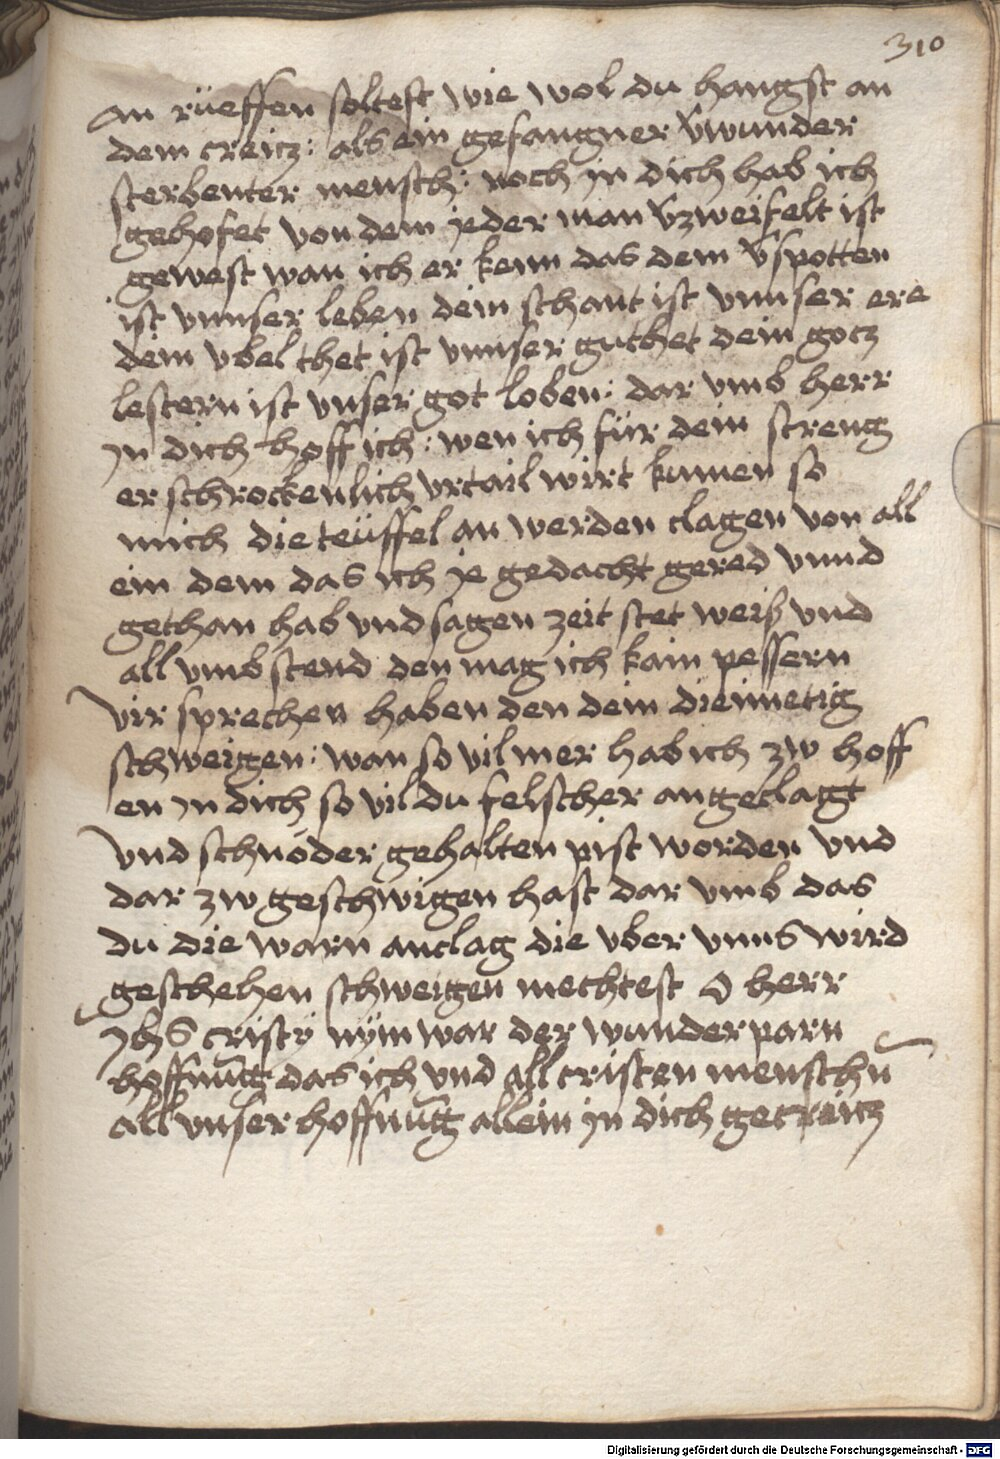 310
an rüeffen soltest wie wol du hangst an
dem creitz: als ein gefangner v̄wunder
sterbenter mensch: noch jn dich hab ich
gehofet von dem jeder man v̄zweifelt ist
gewest wan ich er kenn das dem v̄spotten
ist vnnser leben dein schant ist vnnser ere
dein vbel thet ist vnnser guthet dein gotz
lestern ist vnser got loben: dar vmb herr
jn dich hoff ich: wen ich für dein streng
er schrockenlich vrtail wirt kumen so
mich die teüffel an werden clagen von all
ein dem das ich je gedacht gered vnnd
gethan hab vnd sagen zeit stet weiß vnd
all vmbstend den mag ich kain pessern
vir sprechen haben den dein diemietig
schweigen: wan so vil mer hab ich zw hoff
en jn dich so vil du felscher angeclagt
vnd schnöder gehalten pist worden vnd
dar zw geschwigen hast dar vmb das
du die warn anclag die vber vnns wird
geschehen schweigen mechtest O herr
jhs cristÿ nÿm war der wunderparn
hoffnūg das ich vnd all cristen menschn
all vnser hoffnūg allein jn dich getreitz
Digitalisierung gefördert durch die Deutsche Forschungsgemeinschaft - DFG